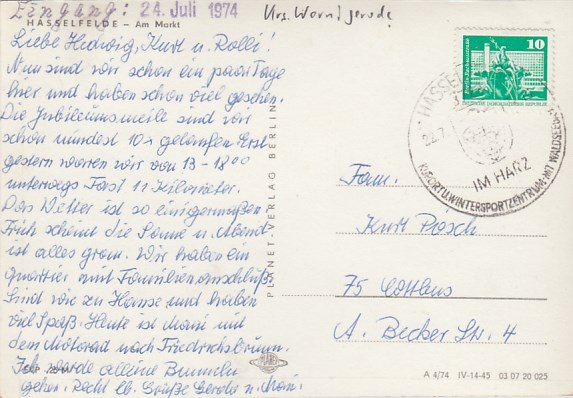 Eingang: 24. Juli 1974
Krs. Wernigerode
HASSELFELDE — Am Markt
Liebe Hedwig, Kurt u. Rolli!
Nun sind wir schon ein paar Tage
hier und haben schon viel gesehen.
Die Jubiläumsmeile sind wir
schon mindest 10x gelaufen. Erst
gestern waren wir von 13 - 18°°
unterwegs fast 11 Kilometer.
Das Wetter ist so einigermaßen.
Früh scheint die Sonne u. Abend
ist alles grau. Wir haben ein
Quartier mit Familienanschluß.
Sind wie zu Hause und haben
viel Spaß. Heute ist Mani mit
dem Motorad nach Friedrichsbrunn.
Ich werde alleine Bummeln
gehen. Recht lb. Grüße Gerda u. Mani.
PLANET-VERLAG BERLIN
10
DEUTSCHE DEMOKRATISCHE REPUBLIK
HASSELF
22.7.
IM HARZ
KURORT U. WINTERSPORTZENTRUM MIT WALDSEEBAD
Fam.
Kurt Päsch
75 Cottbus
A. Becker Str. 4
A 4/74 IV-14-45 03 07 20 025